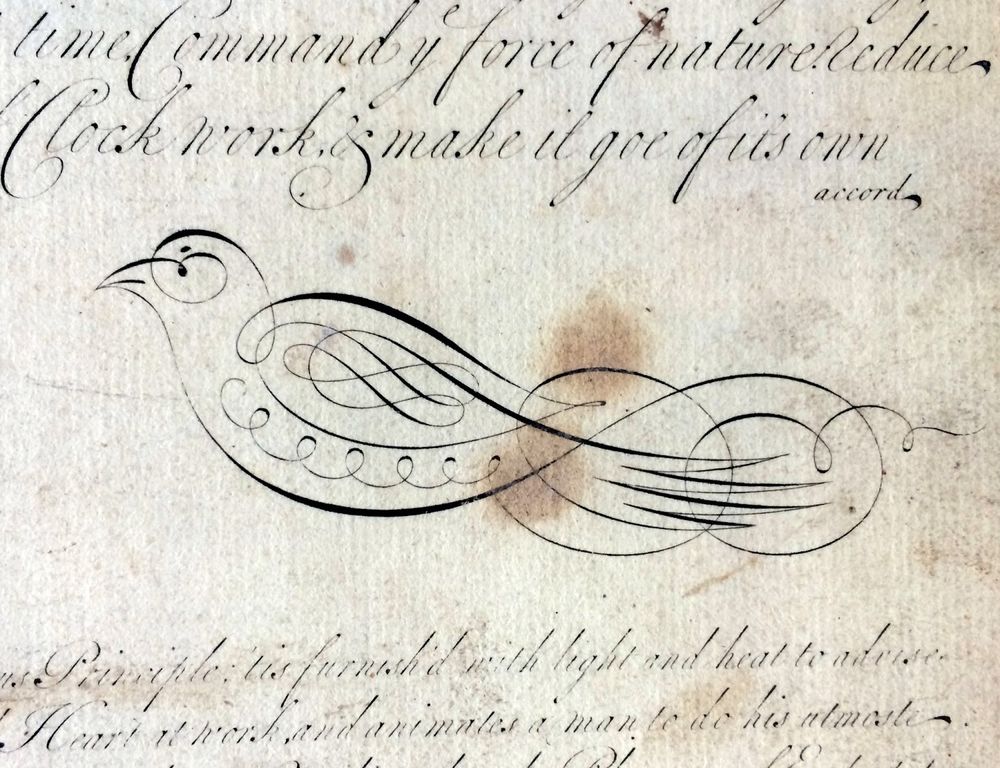 time, Command yͤ force of nature. Reduce
Clock work, & make it goe of it's own
accord
Principle, 'tis furnish'd with light and heat to advise
Heart at work, and animates a man to do his utmoste.